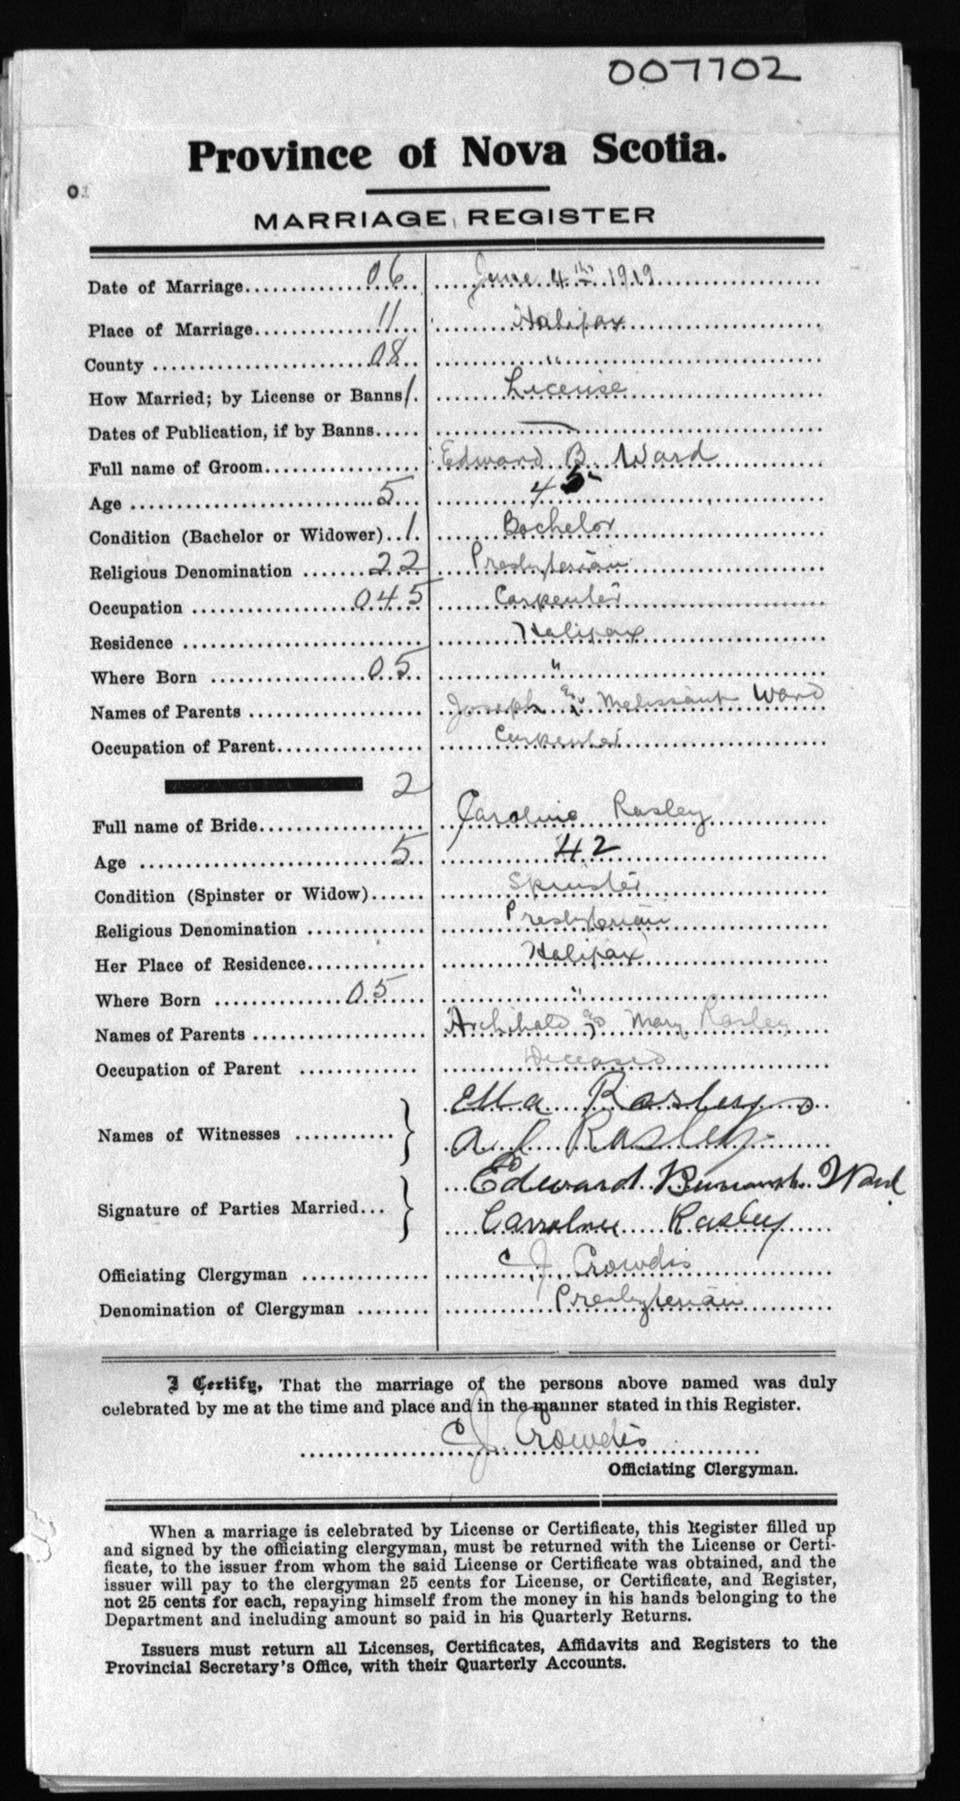 007702
Province of Nova Scotia.
01
MARRIAGE REGISTER
Date of Marriage 06 June 4th 1919
Place of Marriage 11 Halifax
County 08 "
How Married; by License or Banns 1. License
Dates of Publication, if by Banns —
Full name of Groom Edward B. Ward
Age 5 45
Condition (Bachelor or Widower) 1. Bachelor
Religious Denomination 22 Presbyterian
Occupation 045 Carpenter
Residence Halifax
Where Born 05 "
Names of Parents Joseph & Ward
Occupation of Parent Carpenter
2
Full name of Bride Caroline Rasley
Age 5 42
Condition (Spinster or Widow) Spinster
Religious Denomination Presbyterian
Her Place of Residence Halifax
Where Born 05 "
Names of Parents Archibald & Mary Rasley
Occupation of Parent Deceased
Names of Witnesses } Ella Rasley
A Rasley
Signature of Parties Married } Edward Ward
Carroline Rasley
Officiating Clergyman C J Crowdis
Denomination of Clergyman Presbyterian
I Certify, That the marriage of the persons above named was duly
celebrated by me at the time and place and in the manner stated in this Register.
C J. Crowdis
Officiating Clergyman.
When a marriage is celebrated by License or Certificate, this Register filled up
and signed by the officiating clergyman, must be returned with the License or Certi-
ficate, to the issuer from whom the said License or Certificate was obtained, and the
issuer will pay to the clergyman 25 cents for License, or Certificate, and Register,
not 25 cents for each, repaying himself from the money in his hands belonging to the
Department and including amount so paid in his Quarterly Returns.
Issuers must return all Licenses, Certificates, Affidavits and Registers to the
Provincial Secretary's Office, with their Quarterly Accounts.